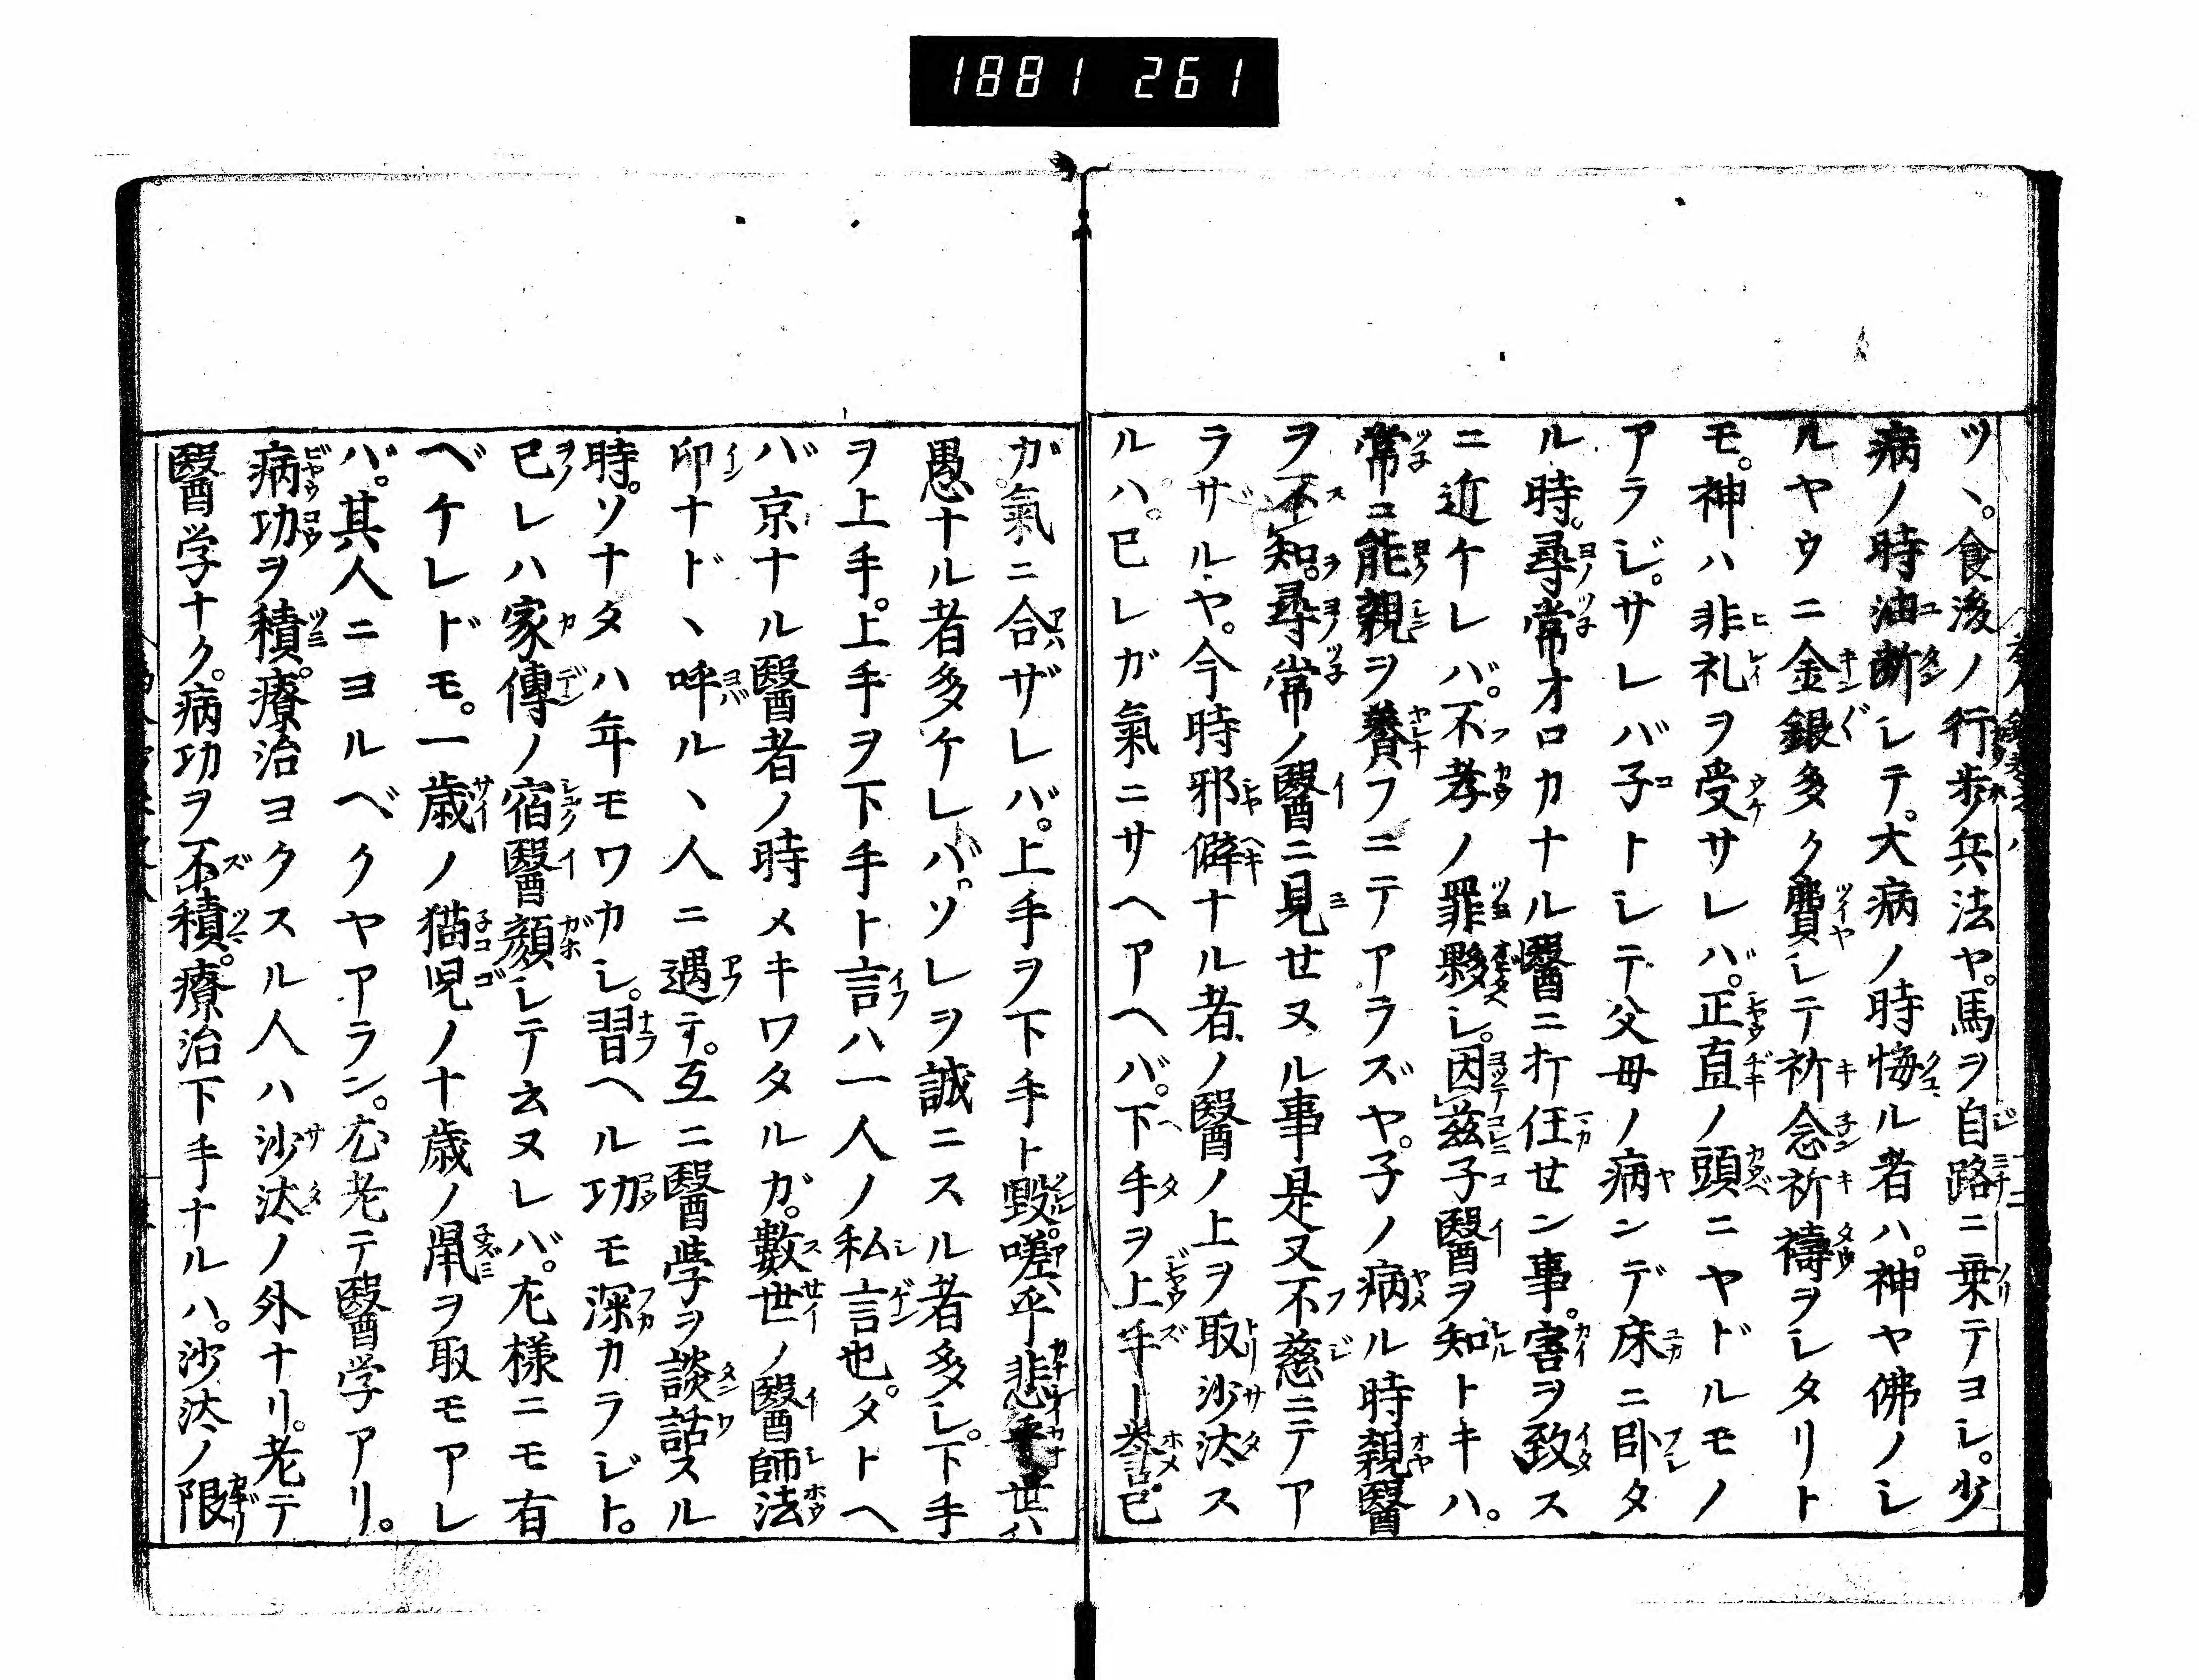 1881 261
ツヽ。食後ノ行歩兵法ヤ。馬ヲ自路ニ乗テヨシ。少
病ノ時油断シテ。大病ノ時悔ル者ハ。神ヤ佛ノシ
ルヤウニ金銀多ク費シテ祈念祈禱ヲシタリト
モ。神ハ非礼ヲ受サレバ。正直ノ頭ニヤドルモノ
アラジ。サレバ子トシテ父母ノ病ンデ床ニ臥タ
ル時。尋常オロカナル醫ニ打任セン事。害ヲ致ス
ニ近ケレバ。不孝ノ罪夥シ。因茲子醫ヲ知トキハ。
常ニ能親ヲ養フニテアラズヤ。子ノ病ル時親醫
ヲ不知。尋常ノ醫ニ見せヌル事是又不慈ニテア
ラザルヤ。今時邪僻ナル者ノ醫ノ上ヲ取沙汰ス
ルハ。已レガ氣ニサヘアヘバ。下手ヲ上手ト誉。已
ガ氣ニ合ザレバ。上手ヲ下手ト毀。嗟乎悲 世ハ
愚ナル者多ケレバ。ソレヲ誠ニスル者多シ。下手
ヲ上手。上手ヲ下手ト言ハ一人ノ私言也。タトヘ
バ京ナル醫者ノ時メキワタルガ。數世ノ醫師法
印ナドヽ呼ルヽ人ニ遇テ。互ニ醫学ヲ談話スル
時。ソナタハ年モワカシ。習ヘル功モ深カラジト。
已レハ家傳ノ宿醫顔シテ云ヌレバ。左様ニモ有
ベケレドモ。一歳ノ猫児ノ十歳ノ鼠ヲ取モアレ
バ。其人ニヨルベクヤアラン。尤老テ醫学アリ。
病功ヲ積。療治ヨクスル人ハ沙汰ノ外ナリ。老テ
醫学ナク。病功ヲ不積。療治下手ナルハ。沙汰ノ限